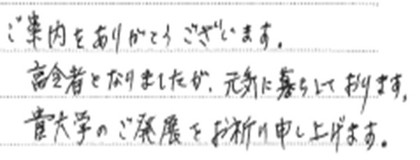 ご案内をありがとうございます。
高令者となりましたが、元気に暮らしております。
貴大学のご発展をお祈り申し上げます。